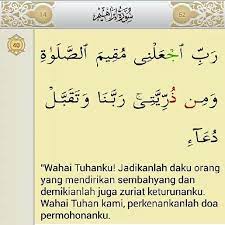 14 سُورَةُ إِبْرَاهِيم 52
40
رَبِّ ٱجۡعَلۡنِي مُقِيمَ ٱلصَّلَوٰةِ
وَمِن ذُرِّيَّتِيۚ رَبَّنَا وَتَقَبَّلۡ
دُعَآءِ
"Wahai Tuhanku! Jadikanlah daku orang
yang mendirikan sembahyang dan
demikianlah juga zuriat keturunanku.
Wahai Tuhan kami, perkenankanlah doa
permohonanku.